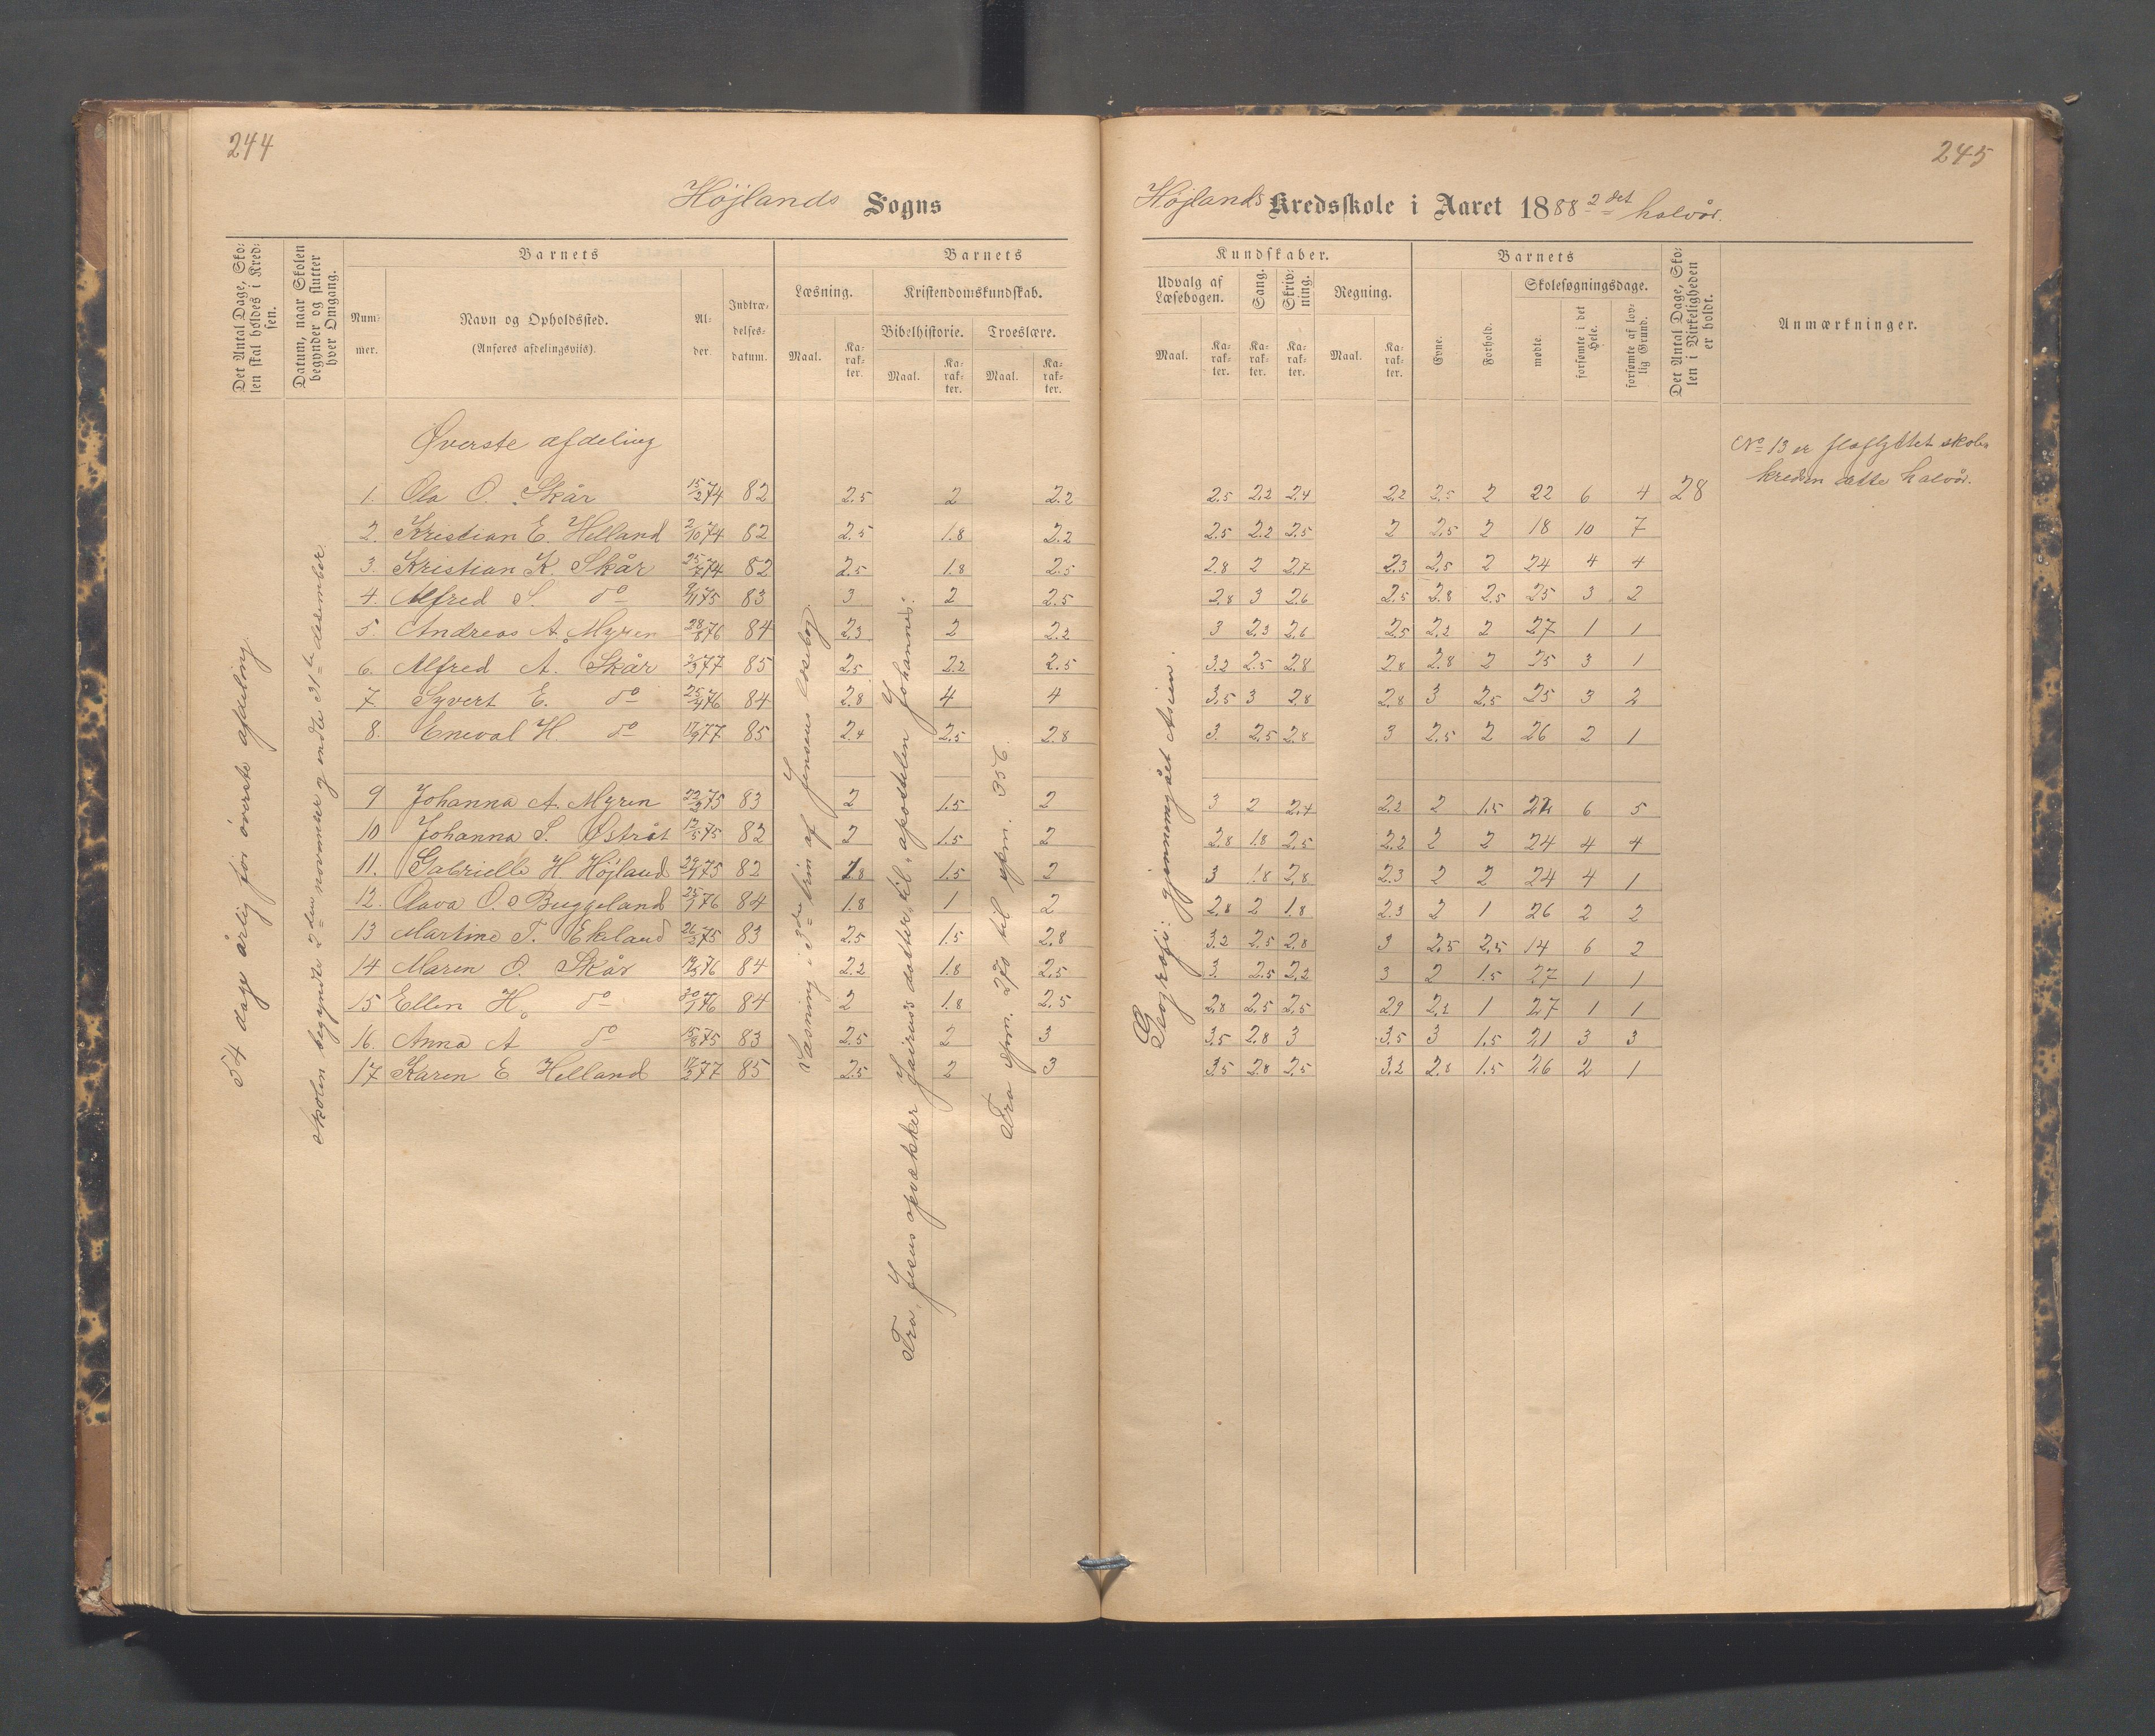 244
Højlands Sogns
Det Antal Dage, Sko-
len skal holdes i Kred-
sen.
Datum, naar Skolen
begynder og slutter
hver Omgang.
Barnets
Num-
mer.
Navn og Opholdssted.
(Anføres afdelingsviis).
Al-
der.
Indtræ-
delses-
datum.
Barnets
Læsning.
Maal.
Ka-
rak-
ter.
Kristendomskundskab.
Bibelhistorie.
Maal.
Ka-
rak-
ter.
Troeslære.
Maal.
Ka-
rak-
ter.
54 dage årlig for øverste afdeling.
Skolen begyndte 2den november og endte 31te desember.
Læsning i 3die trin af Jensens læsebog.
Fra, Jesus opvækker Jairus's datter, til, apostelen Johannes.
Fra spm. 270 til spm. 356.
Øverste afdeling
1. Ola O. Skår 15/2 74 82 2.5 2 2.2
2. Kristian E. Helland 2/10 74 82 2.5 1.8 2.2
3. Kristian K. Skår 25/7 74 82 2.5 1.8 2.5
4. Alfred S. do 9/11 75 83 3 2 2.5
5. Andreas A. Myren 28/8 76 84 2.3 2 2.2
6. Alfred A. Skår 3/3 77 85 2.5 2.2 2.5
7 Syvert E. do 25/4 76 84 2.8 4 4
8. Eneval H. do 17/9 77 85 2.4 2.5 2.8
9 Johanna A. Myren 23/3 75 83 2 1.5 2
10 Johanna S. Østråt 12/5 75 82 2 1.5 2
11. Gabrielle H. Højland 29/4 75 82 1.8 1.5 2
12. Olava O. Buggeland 25/1 76 84 1.8 1 2
13 Martine T. Ekeland 26/3 75 83 2.5 1.5 2.8
14 Maren O. Skår 76 84 2.2 1.8 2.5
15 Ellen H. do 30/1 76 84 2 1.8 2.5
16. Anna A do 15/8 75 83 2.5 2 3
17 Karen E Helland 17/2 77 85 2.5 2 3
245
Højlands Kredsskole i Aaret 1888 2det halvår.
Kundskaber.
Udvalg af
Læsebogen.
Maal.
Ka-
rak-
ter.
Sang.
Ka-
rak-
ter.
Skriv-
ning.
Ka-
rak-
ter.
Regning.
Maal.
Ka-
rak-
ter.
Barnets
Evne.
Forhold.
Skolesøgningsdage.
mødte.
forsømte i det
Hele.
forsømte af lov-
lig Grund.
Det Antal Dage, Sko-
len i Virkeligheden
er holdt.
Anmærkninger.
Geografi: gjennemgået Asien.
No 13 er fraflyttet skole-
kredsen dette halvår.
2.5 2.2 2.4 2.2 2.5 2 22 6 4 28
2.5 2.2 2.5 2 2.5 2 18 10 7
2.8 2 2.7 2.3 2.5 2 24 4 4
2.8 3 2.6 2.5 2.8 2.5 25 3 2
3 2.3 2.6 2.5 2.2 2 27 1 1
3.2 2.5 2.8 2.8 2.8 2 25 3 1
3.5 3 2.8 2.8 3 2.5 25 3 2
3 2.5 2.8 3 2.5 2 26 2 1
3 2 2.4 2.2 2 1.5 22 6 5
2.8 1.8 2.5 2.2 2 2 24 4 4
3 1.8 2.8 2.3 2 2 24 4 1
2.8 2 1.8 2.3 2 1 26 2 2
3.2 2.5 2.8 3 2.5 2.5 14 6 2
3 2.5 2.2 3 2 1.5 27 1 1
2.8 2.5 2.5 2.9 2.2 1 27 1 1
3.5 2.8 3 3.5 3 1.5 21 3 3
3.5 2.8 2.5 3.2 2.8 1.5 26 2 1